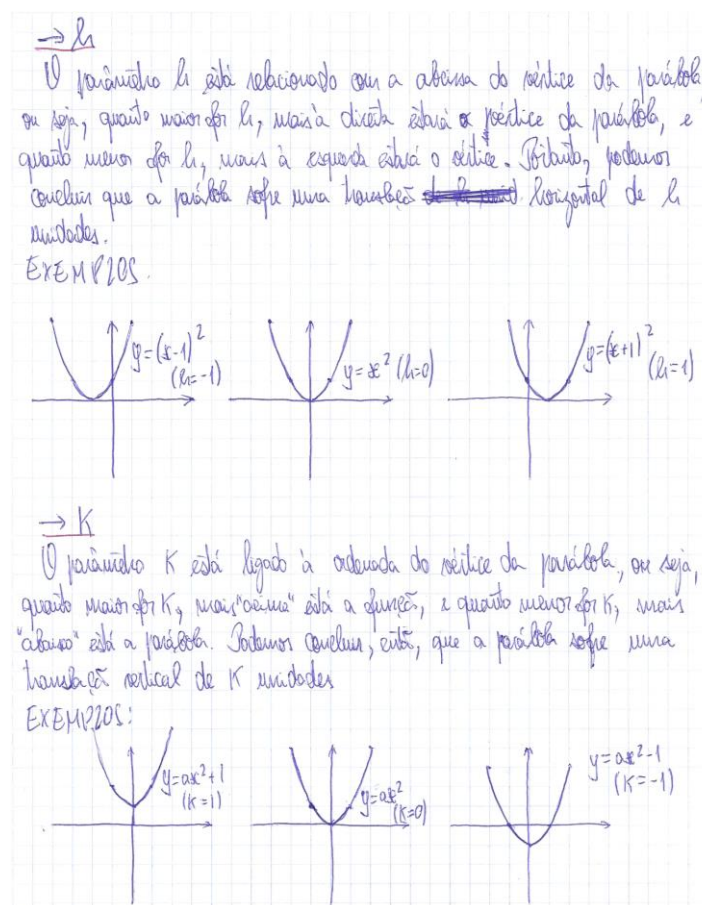 → h
O parâmetro h está relacionado com a abcissa do vértice da parábola
ou seja, quanto maior for h, mais à direita estará o vértice da parábola, e
quanto menor for h, mais à esquerda estará o vértice. Portanto, podemos
concluir que a parábola sofre uma translação horizontal de h
unidades.
EXEMPLOS.
y=(x-1)²
(h=-1)
y=x² (h=0)
y=(x+1)²
(h=1)
→ K
O parâmetro K está ligado à ordenada do vértice da parábola, ou seja,
quanto maior for K, mais "acima" está a função, e quanto menor for K, mais
"abaixo" está a parábola. Podemos concluir, então, que a parábola sofre uma
translação vertical de K unidades
EXEMPLOS:
y=ax²+1
(K=1)
y=ax²
(K=0)
y=ax²-1
(K=-1)